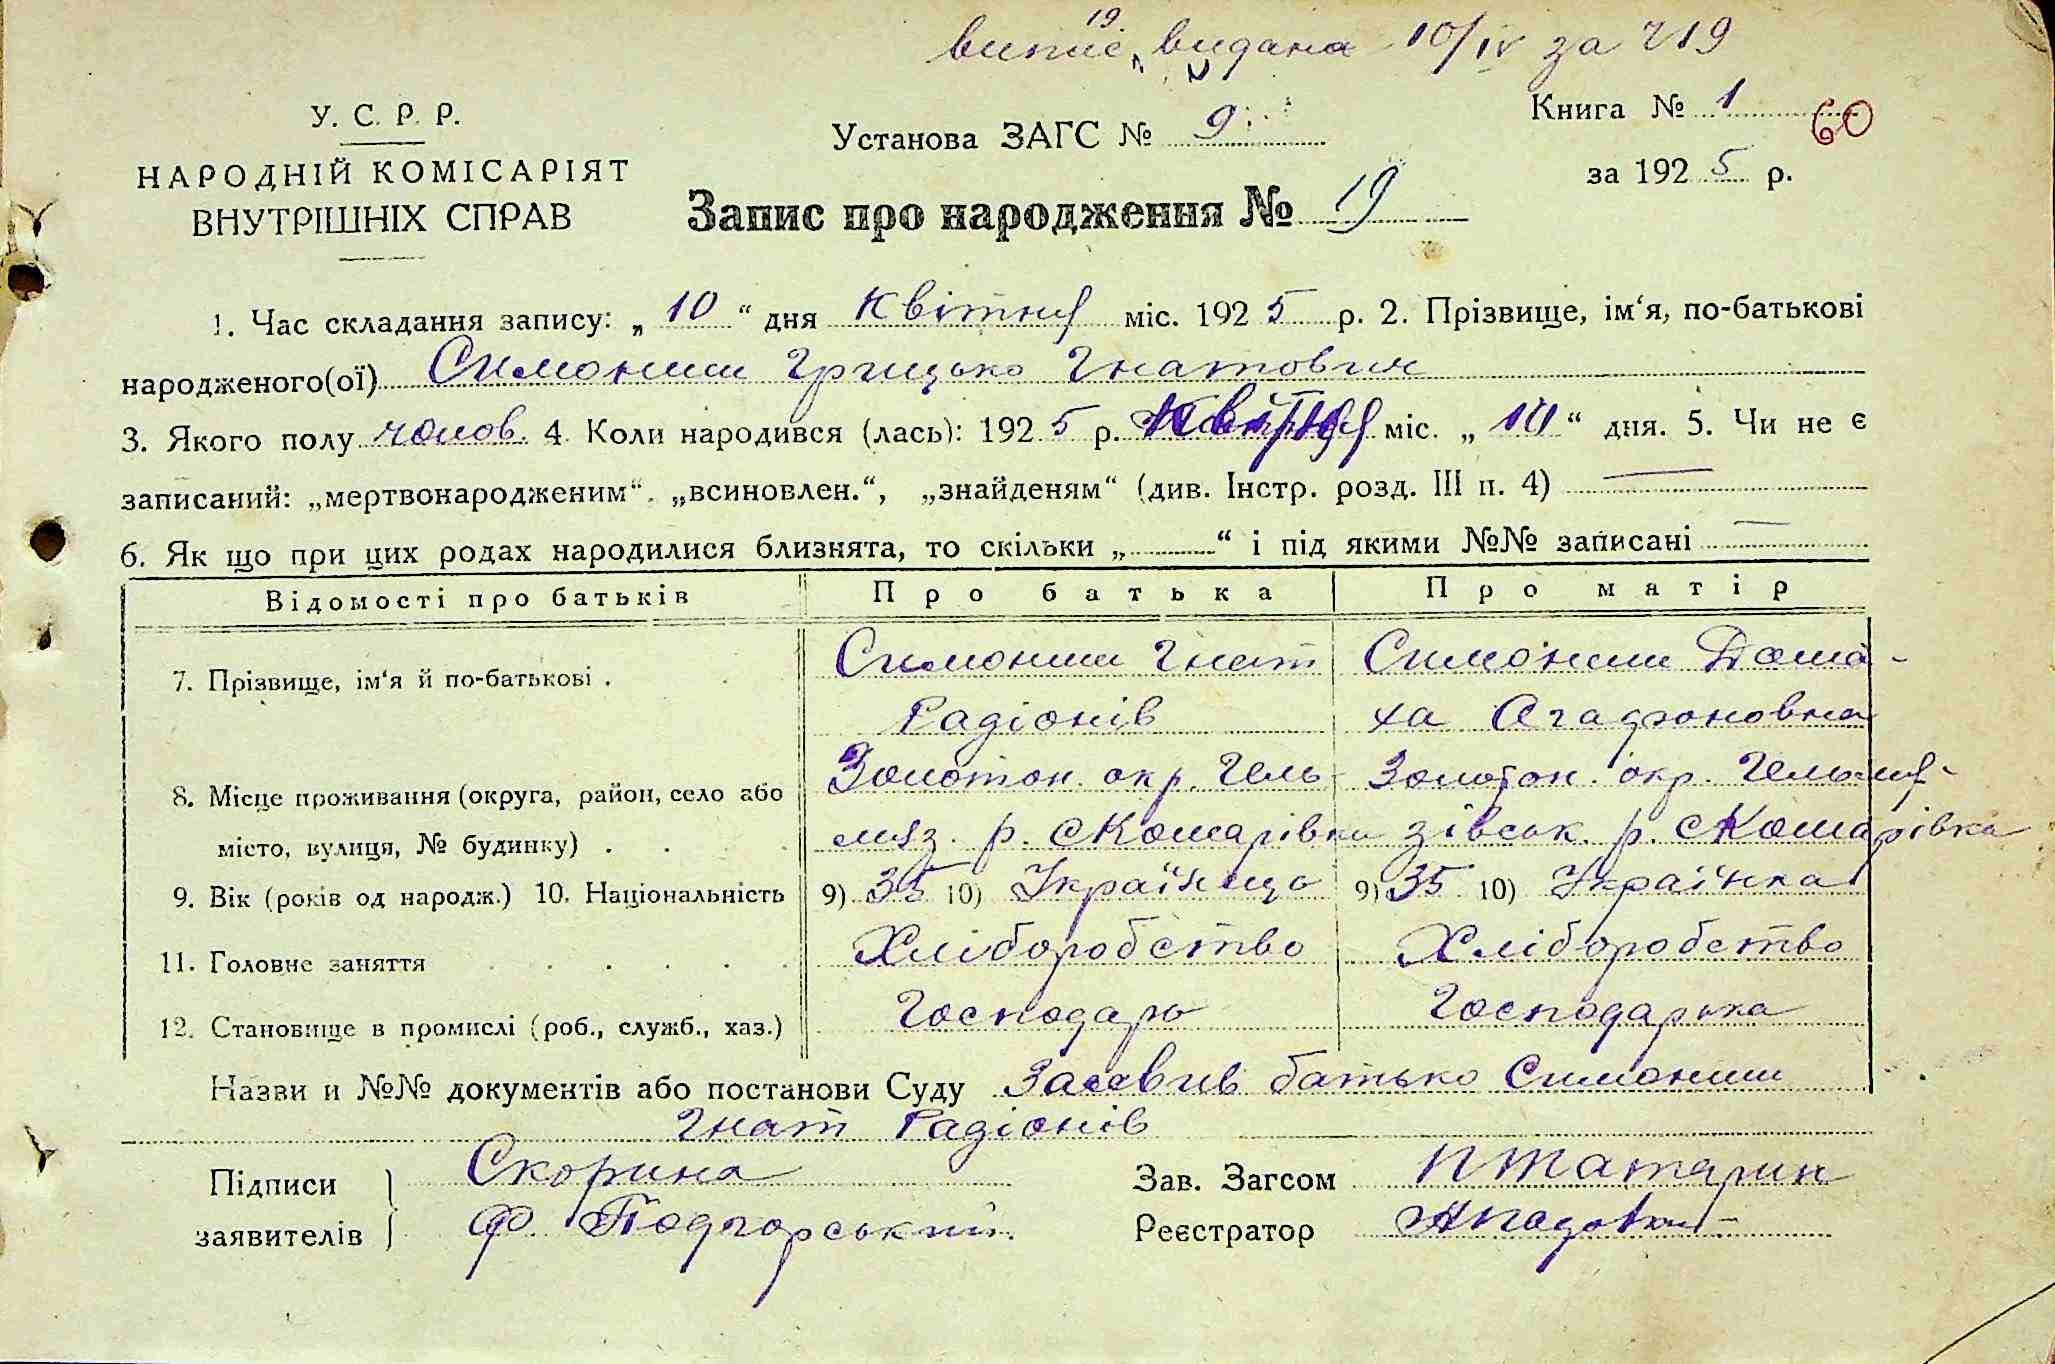 випис 19 видана 10/IV за №19
У. С. Р. Р.
НАРОДНІЙ КОМІСАРІЯТ
ВНУТРІШНІХ СПРАВ
Установа ЗАГС № 9
Книга № 1
60
за 1925 р.
Запис про народження № 19
1. Час складання запису: „10“ дня Квітня міс. 1925 р. 2. Прізвище, ім‘я, по-батькові
народженого(ої) Симониш Грицько Гнатович
3. Якого полу чолов. 4. Коли народився (лась): 1925 р. Квітня міс. „10“ дня. 5. Чи не є
записаний: „мертвонародженим“. „всиновлен.“, „знайденям“ (див. Інстр. розд. III п. 4) —
6. Як що при цих родах народилися близнята, то скільки „ “ і під якими №№ записані —
Відомості про батьків Про батька Про матір
7. Прізвище, ім‘я й по-батькові . Симониш Гнат Симониш Дома-
Радіонів ха Агафоновна
8. Місце проживання (округа, район, село або Золотон. окр. Гель- Золотон. окр. Гельмя-
місто, вулиця, № будинку) . мяз. р. с Комарівка зівськ. р. с Комарівка
9. Вік (років од народж.) 10. Національність 9) 35 10) Українць 9) 35 10) Українка
11. Головне заняття Хліборобство Хліборобство
12. Становище в промислі (роб., служб., хаз.) Господарь Господарька
Назви и №№ документів або постанови Суду Заявив батько Симониш
Гнат Радіонів
Підписи заявителів Скорина
Ф. Подгорський.
Зав. Загсом П Татарин
Реєстратор